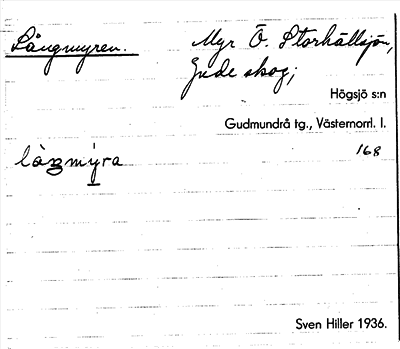 Långmyren. Myr Ö. Storhällsjön,
Gude skog;
Högsjö s:n
Gudmundrå tg., Västernorrl. l.
làŋmy̱ra 168
Sven Hiller 1936.